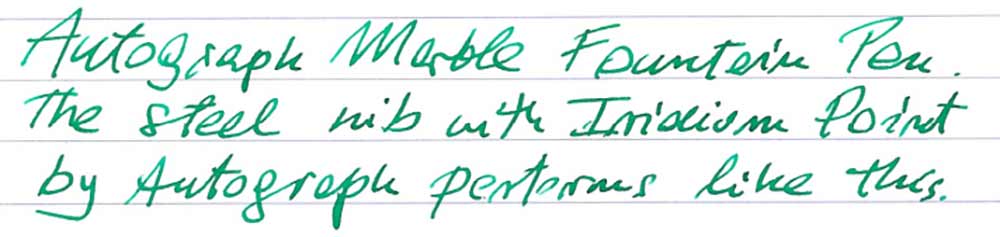 Autograph Marble Fountain Pen.
The steel nib with Iridium Point
by Autograph performs like this.